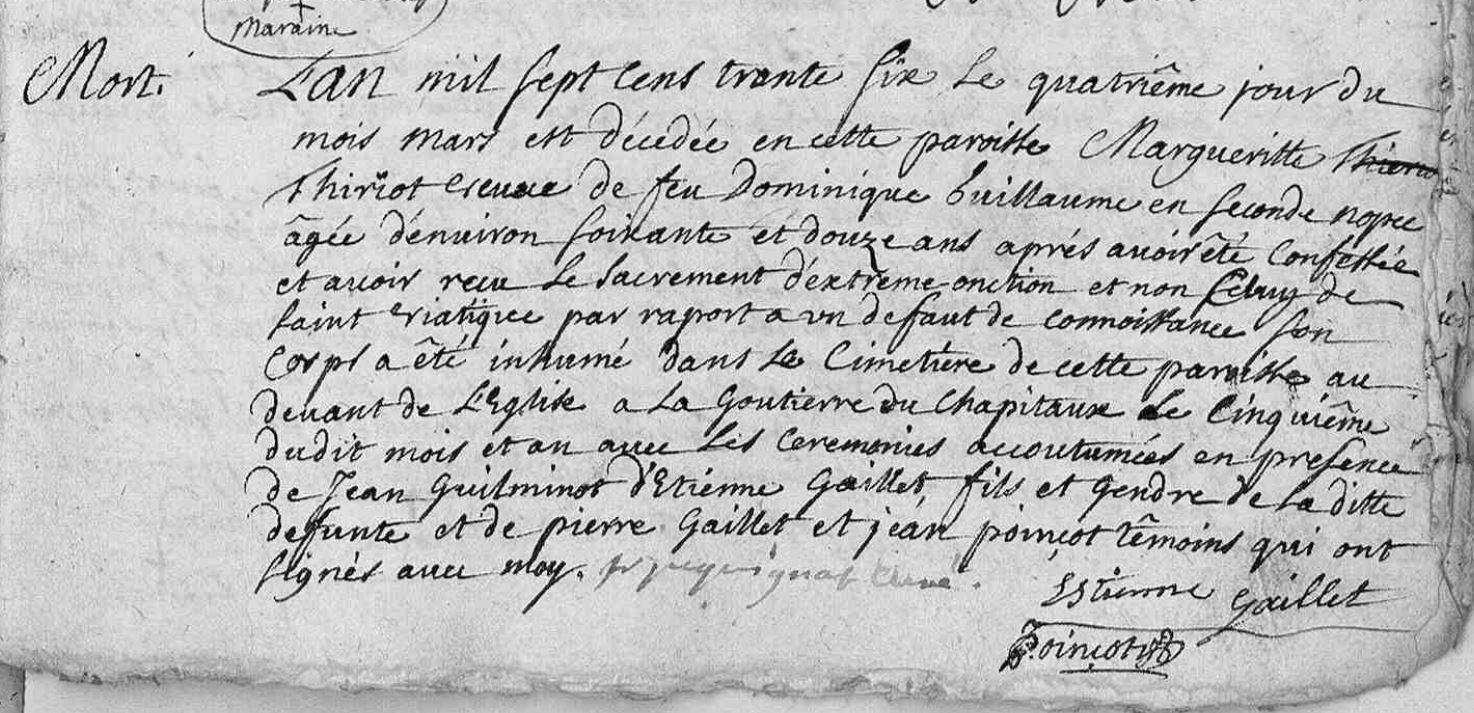 Maraine
Mort. L'an mil sept cens trente six le quatriême jour du
mois mars est décedée en cette paroisse Margueritte
Thiriot veuve de feu Dominique Guillaume en seconde nopce
âgée d'énuiron soixante et douze ans aprés auoir êté Confessée
et auoir recu le sacrement d'éxtrême onction et non Celuy de
saint viatique par raport a vn defaut de connoissance son
corps a êté inhumé dans le Cimetiére de cette paroisse au
deuant de L'Eglise a La Goutierre du Chapitaux Le Cinquiême
dudit mois et an auec Les Ceremonies accoutumées en presence
de Jean Guilminot d'Etiénne Gaillet, fils et Gendre de La ditte
defunte et de pierre Gaillet et jean poinçot têmoins qui ont
signés auec moy.
Estienne Gaillet
Poinçot